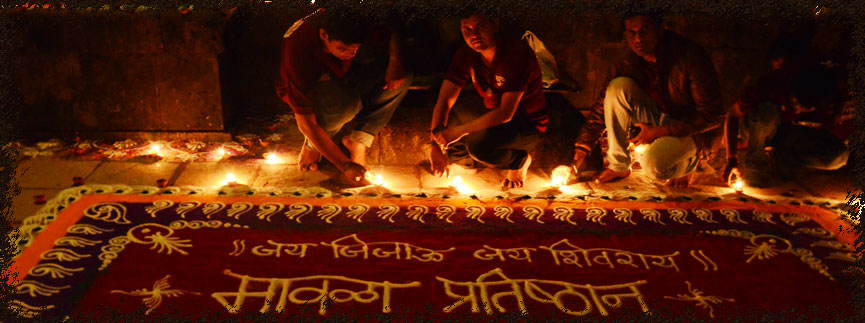 ॥ जय जिजाऊ जय शिवराय ॥
मावळा प्रतिष्ठान